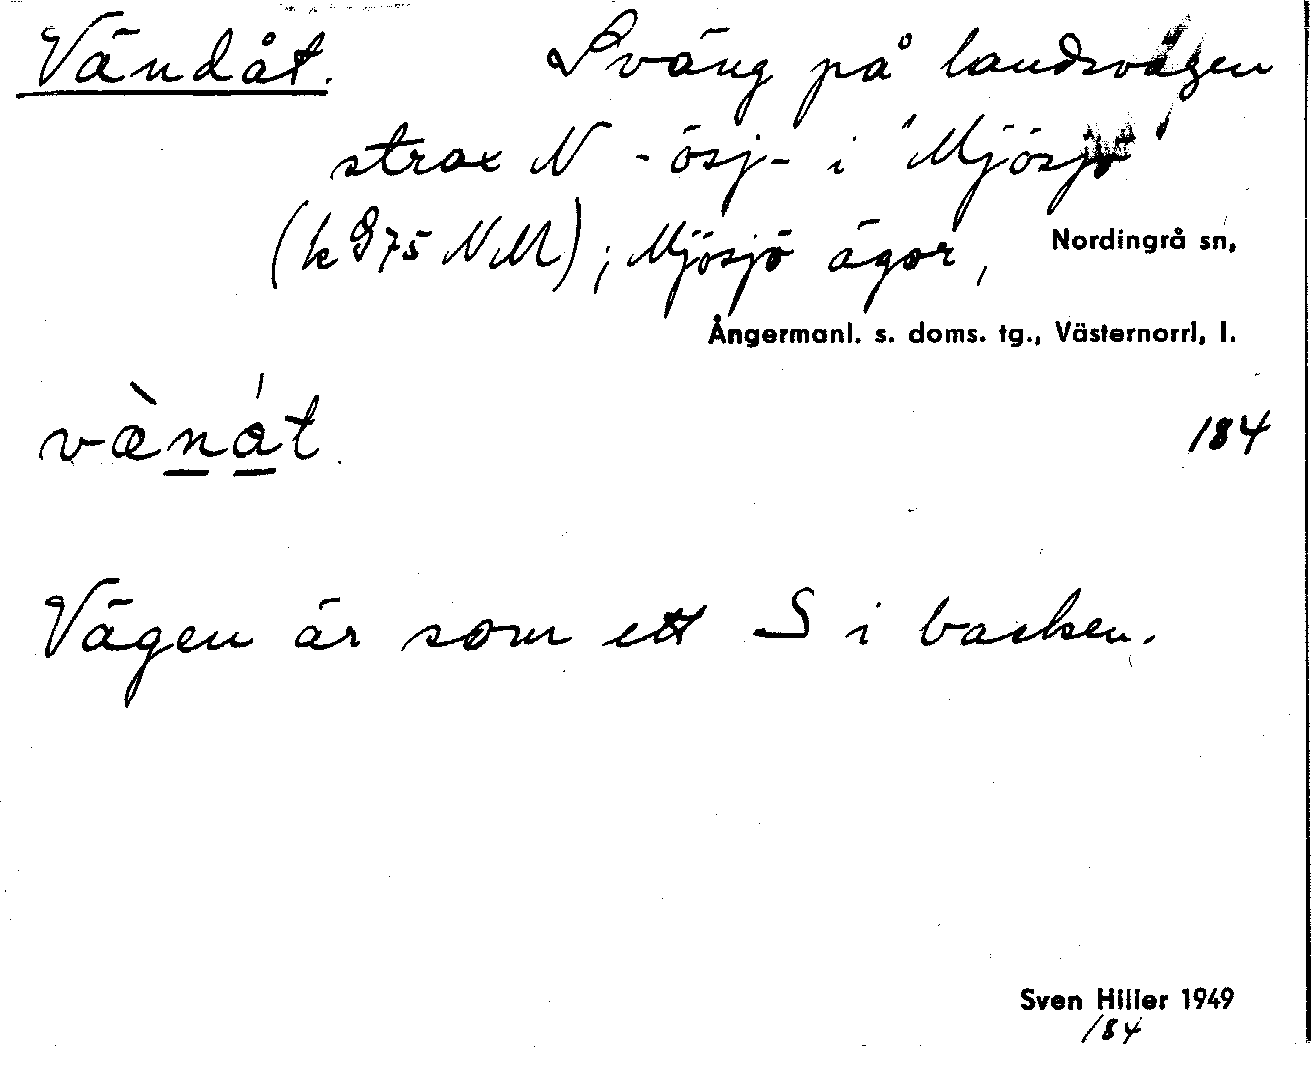 Vändåt. Sväng på landsvägen
strax N -ösj- i "Mjösjö"
(k 975 NM); Mjösjö ägor, Nordingrå sn,
Ångermanl. s. doms. tg., Västernorrl. l.
vænat 184
Vägen är som ett S i backen.
Sven Hiller 1949
184